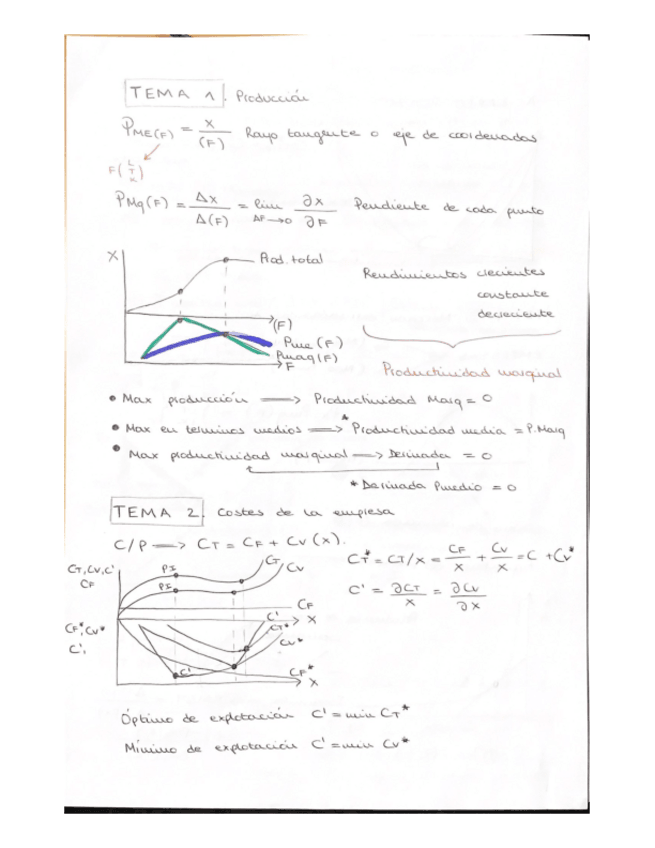 TEMA 1. Producción
PME(F) = X/(F) Rayo tangente o eje de coordenadas
F(L T K)
PMq(F) = ΔX/Δ(F) = lim ΔF→0 ∂X/∂F Pendiente de cada punto
X
Prod. total
Rendimientos crecientes
constante
decreciente
(F)
Pme (F)
Pmaq(F)
F
Productividad marginal
• Max producción ⟹ Productividad Marg = 0
• Max en terminos medios ⟹ *Productividad media = P.Marg
• Max productividad marginal ⟹ Derivada = 0
* Derivada Pmedio = 0
TEMA 2. Costes de la empresa
C/P ⟹ CT = CF + CV (x).
CT, CV, C'
CF
PI
PI
CT
CV
CF
X
CT* = CT/x = CF/x + CV/x = C + CV*
C' = ∂CT/x = ∂CV/∂x
CF*, CV*
C',
C'
CT*
CV*
C'
CF*
X
Óptimo de explotación C' = min CT*
Mínimo de explotación C' = min CV*